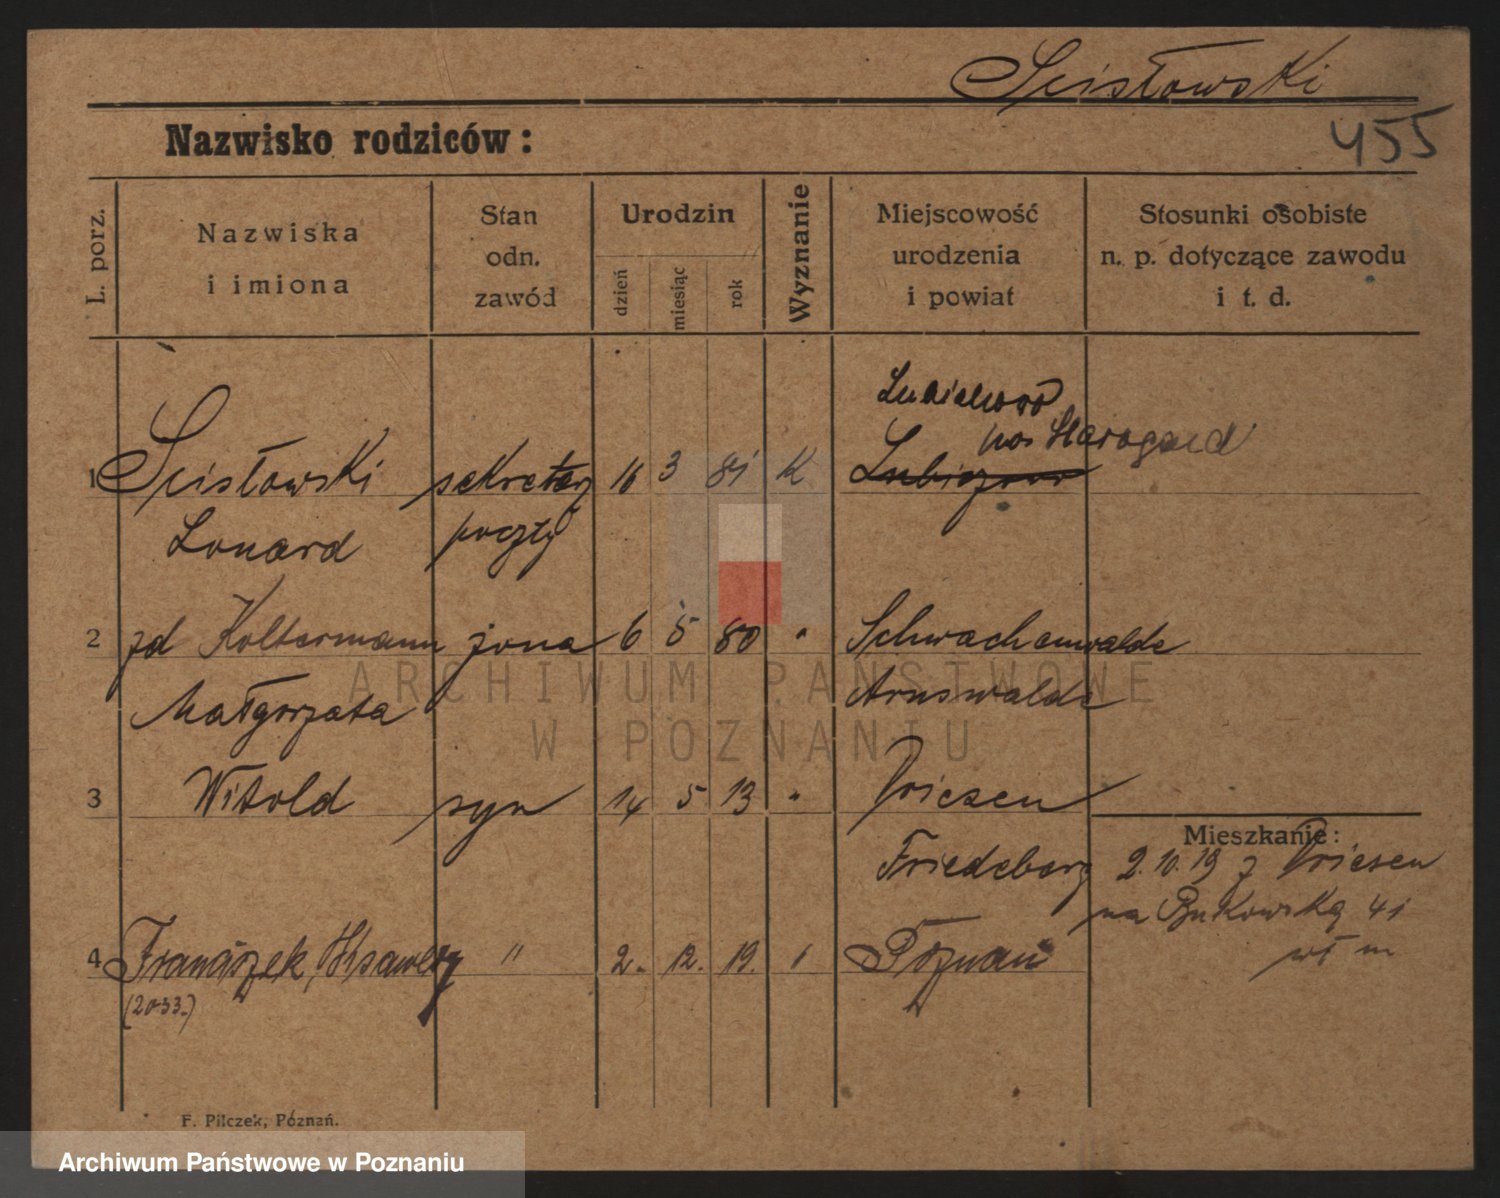 Scisłowski
455
Nazwisko rodziców:
L. porz.
Nazwiska
i imiona
Stan
odn.
zawód
Urodzin
dzień
miesiąc
rok
Wyznanie
Miejscowość
urodzenia
i powiat
Stosunki osobiste
n. p. dotyczące zawodu
i t. d.
Lubichowo
pow Starogard
1 Scisłowski sekretarz 16 3 81 K
Lonard poczty
2 zd Koltermann żona 6 5 80 " Schwachenwalde
Małgorzata Arnswalde
3 Witold syn 14 5 13 " Driesen
Mieszkanie:
Friedeberg 2.10.19 z Driesen
na Bukowską 41
4 Franciszek Ksawery " 2. 12. 19. Poznań
(2033.)
F. Pilczek, Poznań.
ARCHIWUM PAŃSTWOWE
W POZNANIU
Archiwum Państwowe w Poznaniu